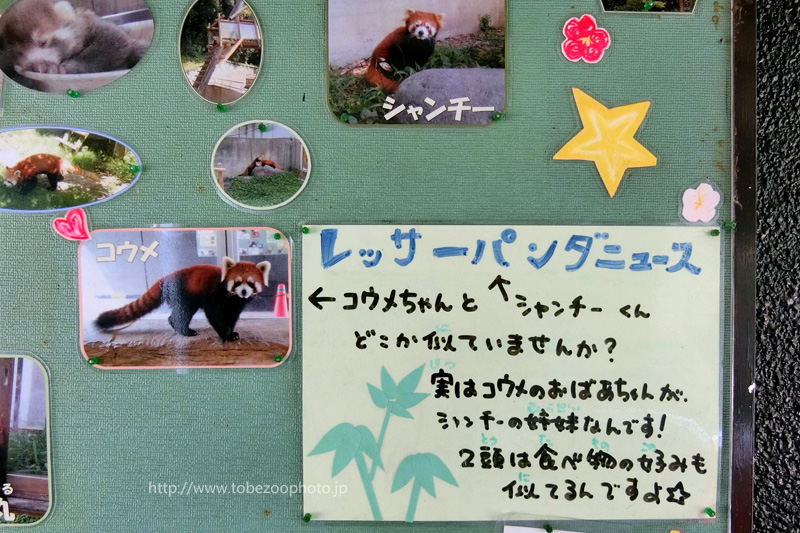 シャンチー
コウメ
レッサーパンダニュース
←コウメちゃんと ↖シャンチーくん
どこか似ていませんか?
実はコウメのおばあちゃんが、
シャンチーの姉妹なんです!
2頭は食べ物の好みも
似てるんですよ☆
http://www.tobezoophoto.jp
丸